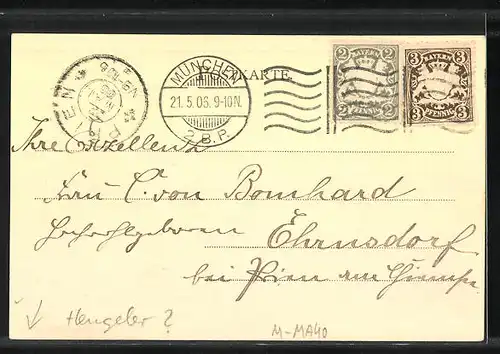 POSTKARTE.
MÜNCHEN
21.5.06. 9-10N.
2. B.P.
PRIEN
BAYERN
2 2
2 PFENNIG 2
BAYERN
3 3
3 PFENNIG 3
Ihre Exzellenz
Frau C. von Bomhard
Hochwohlgeboren
Ehrnsdorf
bei Prien am Chiemsee
Hengeler?
M-MA40